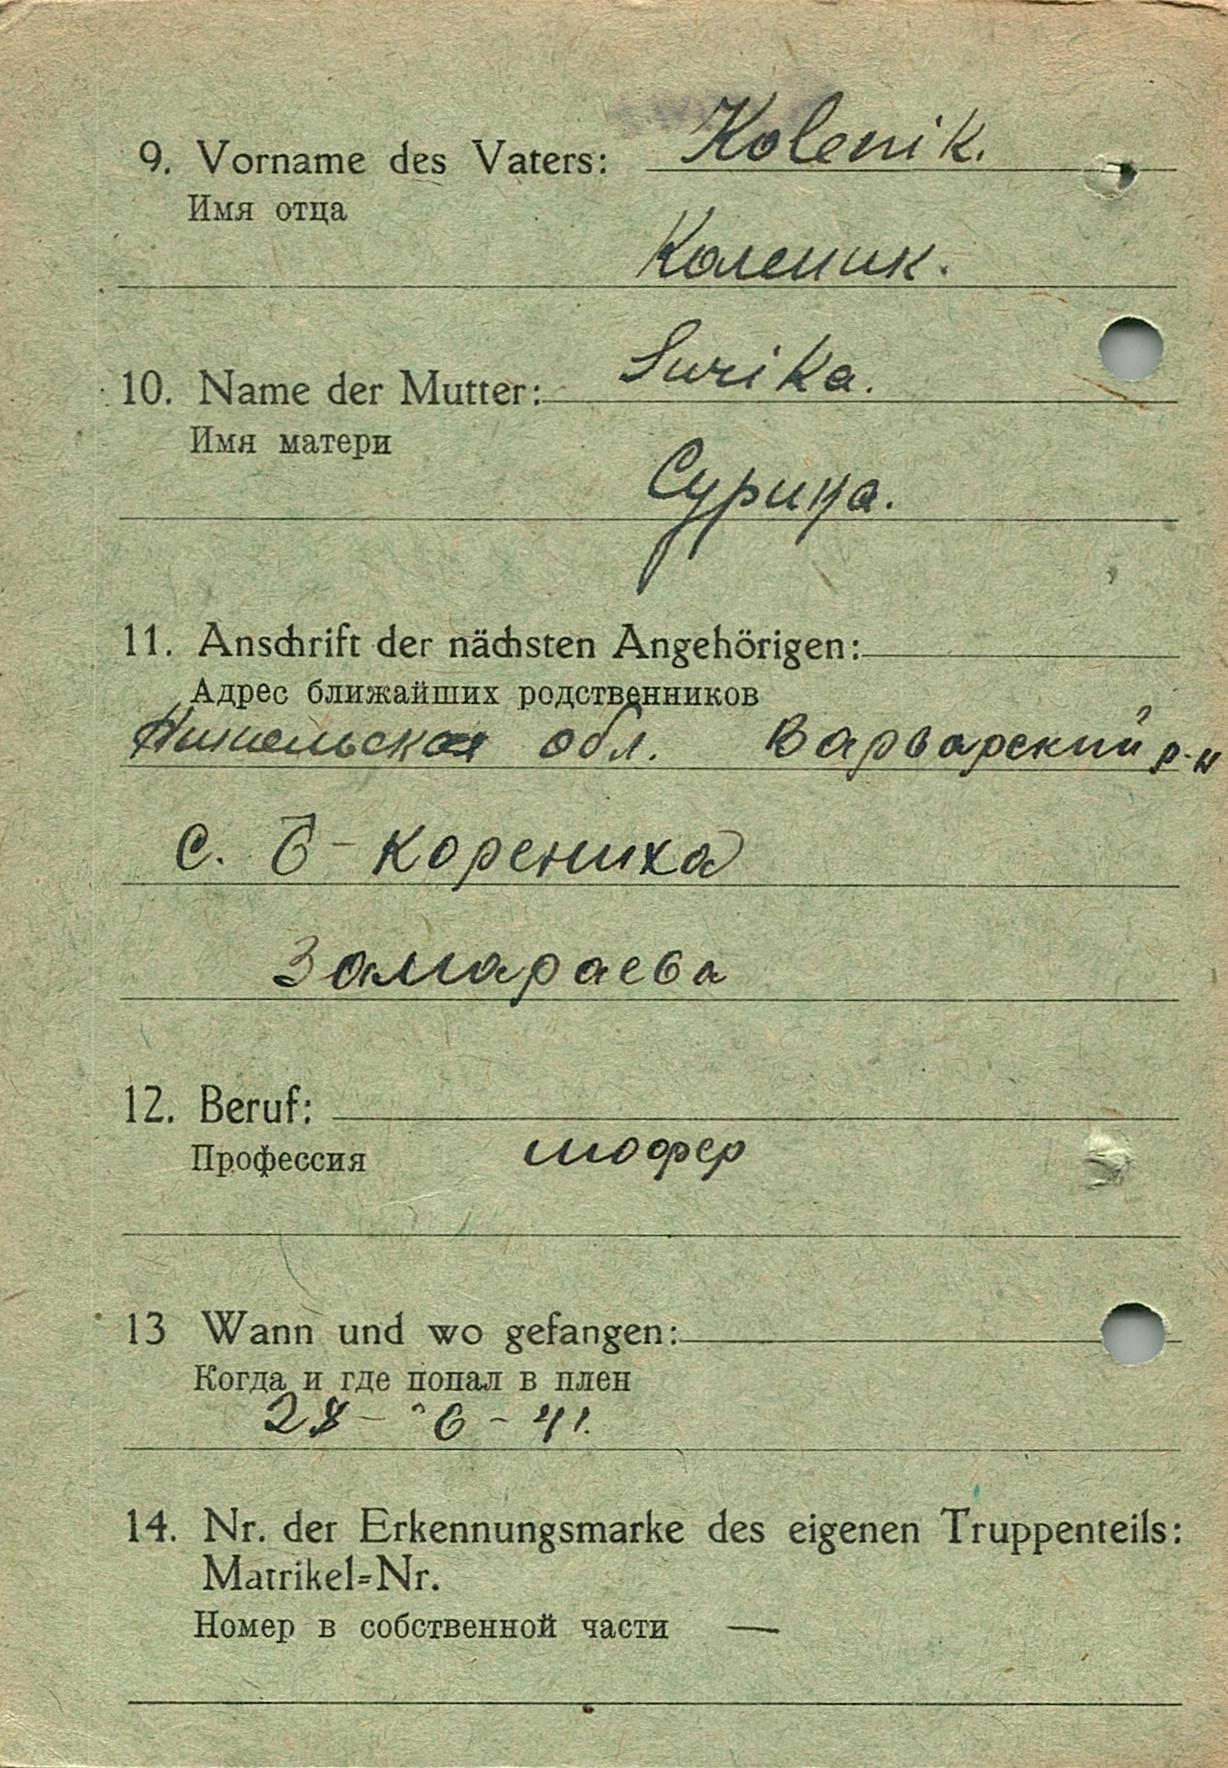 9. Vorname des Vaters: Kolenik.
Имя отца
Коленик.
10. Name der Mutter: Surika.
Имя матери
Сурица.
11. Anschrift der nächsten Angehörigen:
Адрес ближайших родственников
обл. Варварский р-н
с. Б-Корениха
Замараева
12. Beruf:
Профессия шофер
13 Wann und wo gefangen:
Когда и где попал в плен
28-6-41.
14. Nr. der Erkennungsmarke des eigenen Truppenteils:
Matrikel=Nr.
Номер в собственной части —